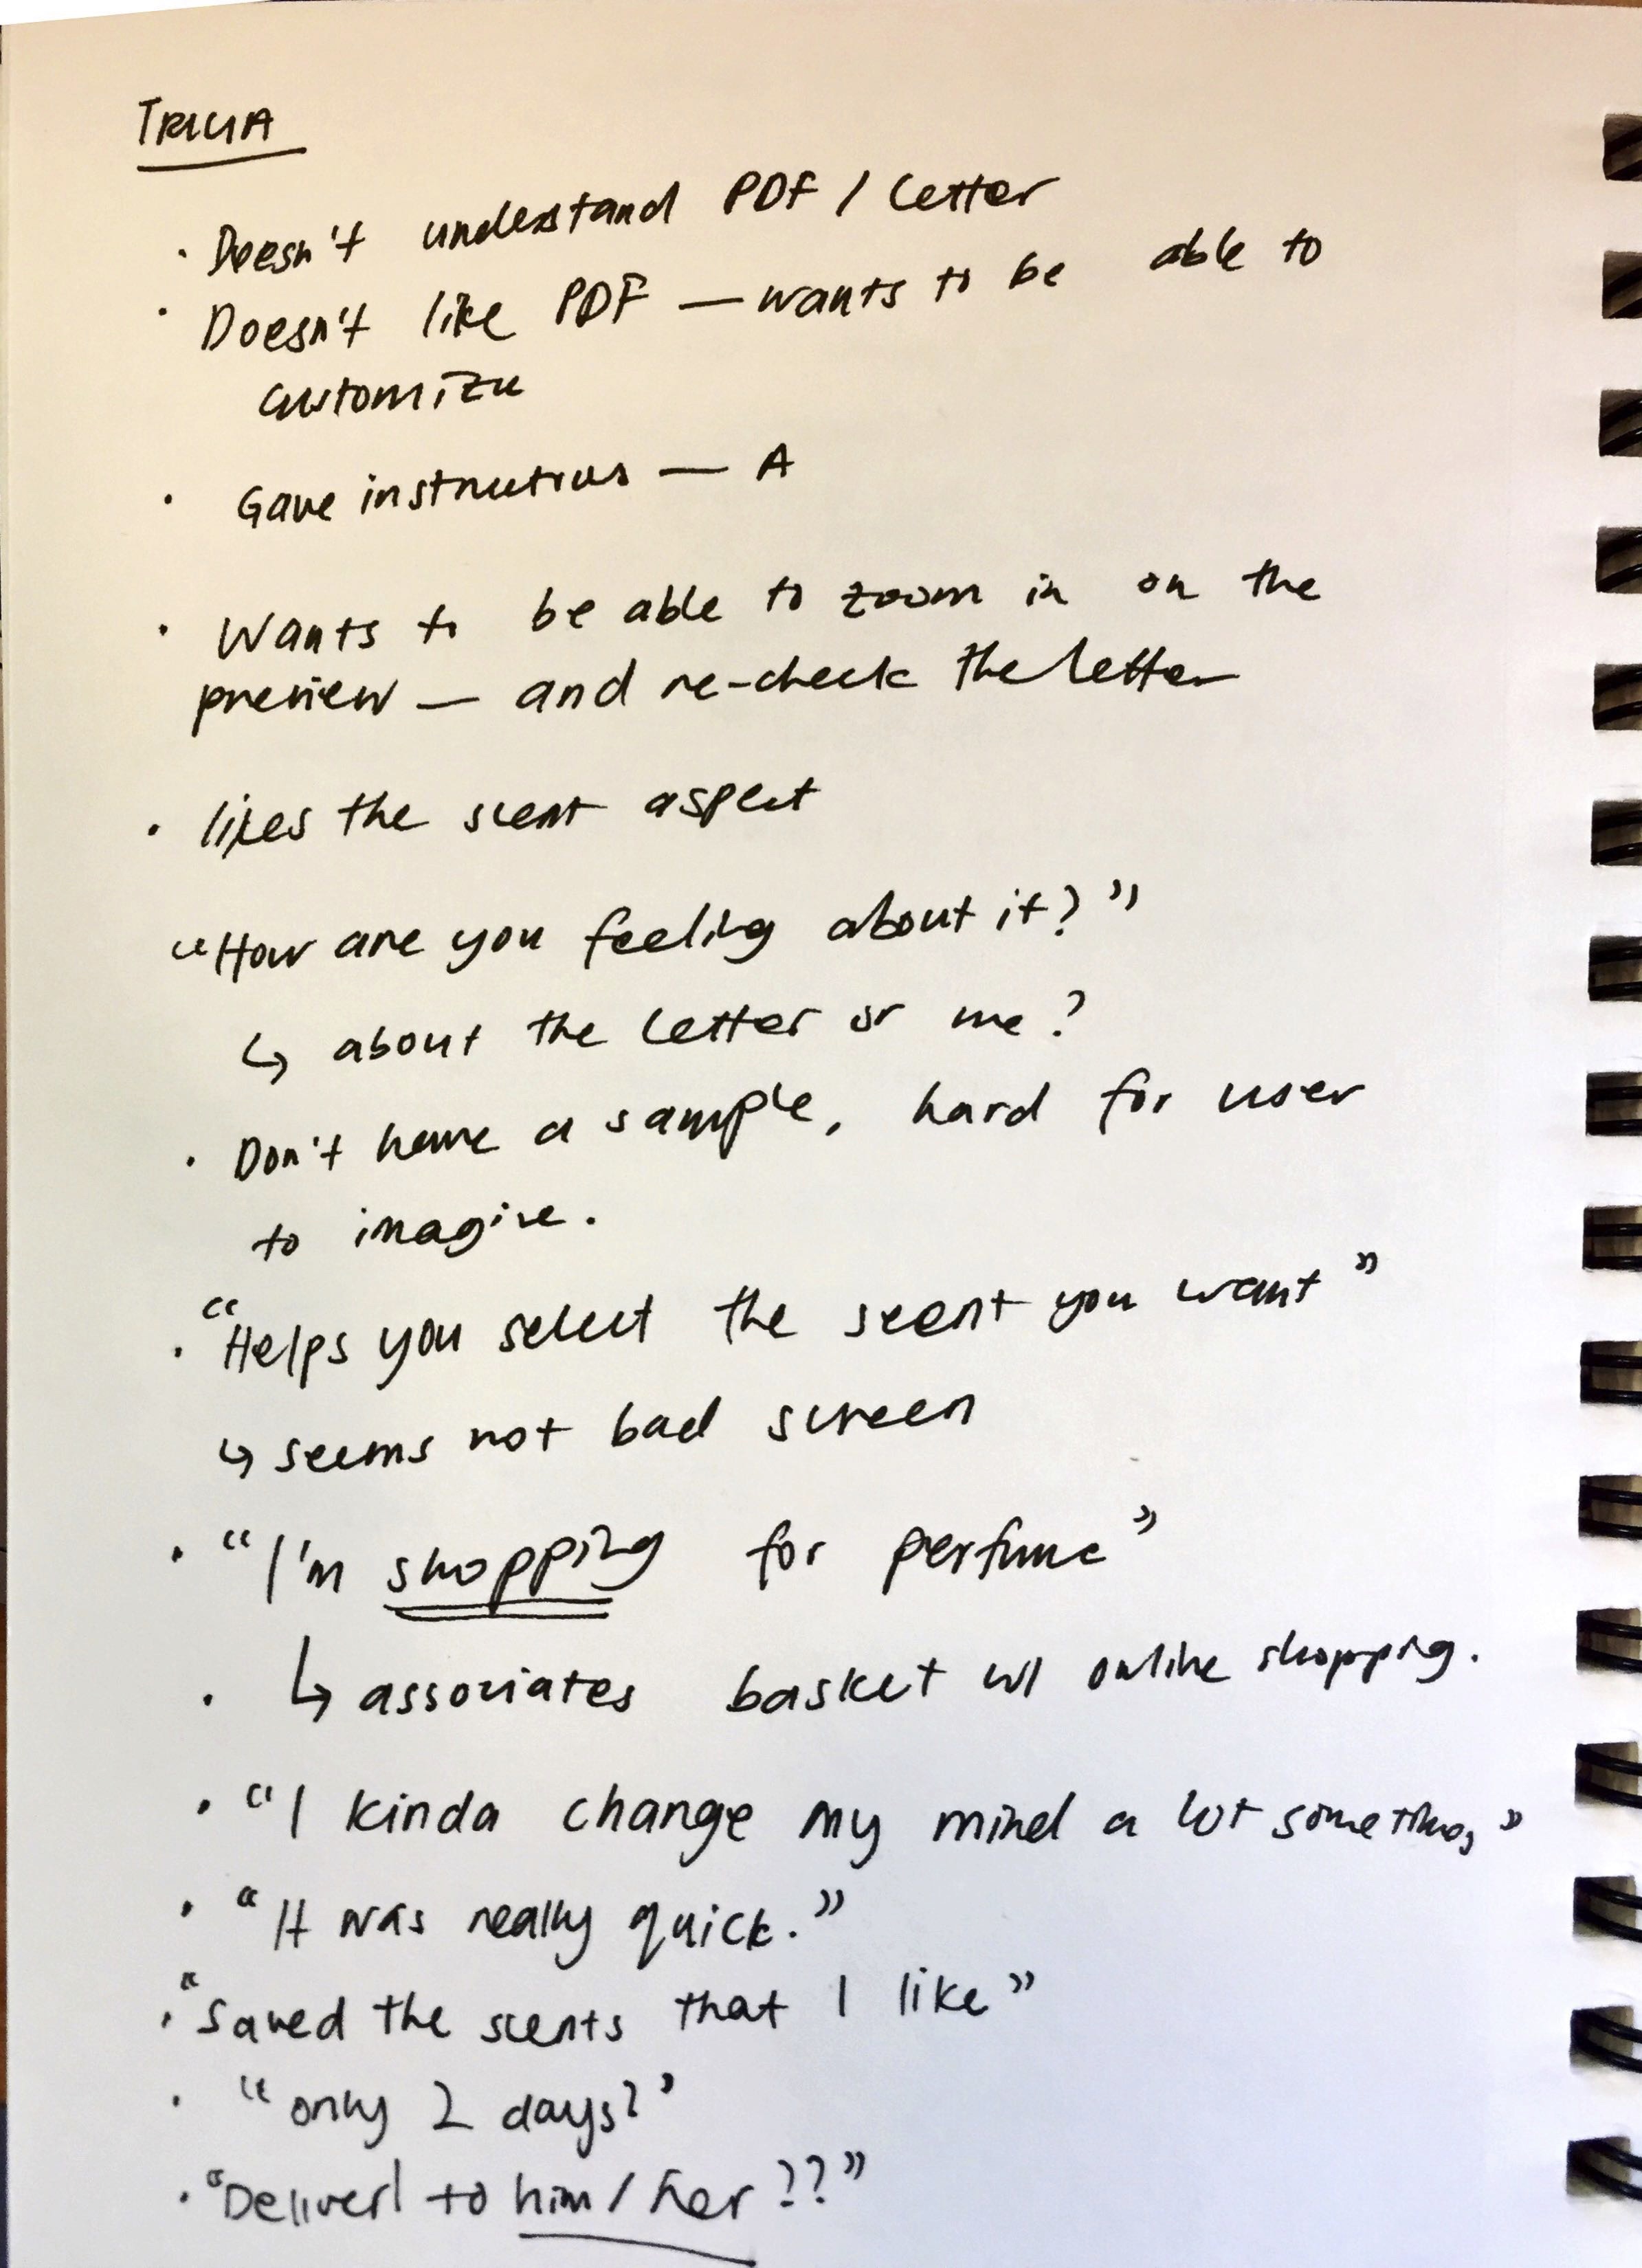 TRICIA
· Doesn't understand PDF / Letter
· Doesn't like PDF — wants to be able to
customize
· Gave instructions — A
· Wants to be able to zoom in on the
preview — and re-check the letter
· likes the scent aspect
"How are you feeling about it?"
↳ about the letter or me?
· Don't have a sample, hard for user
to imagine.
· "Helps you select the scent you want"
↳ seems not bad screen
· "I'm shopping for perfume"
· ↳ associates basket w/ online shopping.
· "I kinda change my mind a lot sometimes"
· "It was really quick."
· "Saved the scents that I like"
· "only 2 days?"
· "Deliver to him / her??"